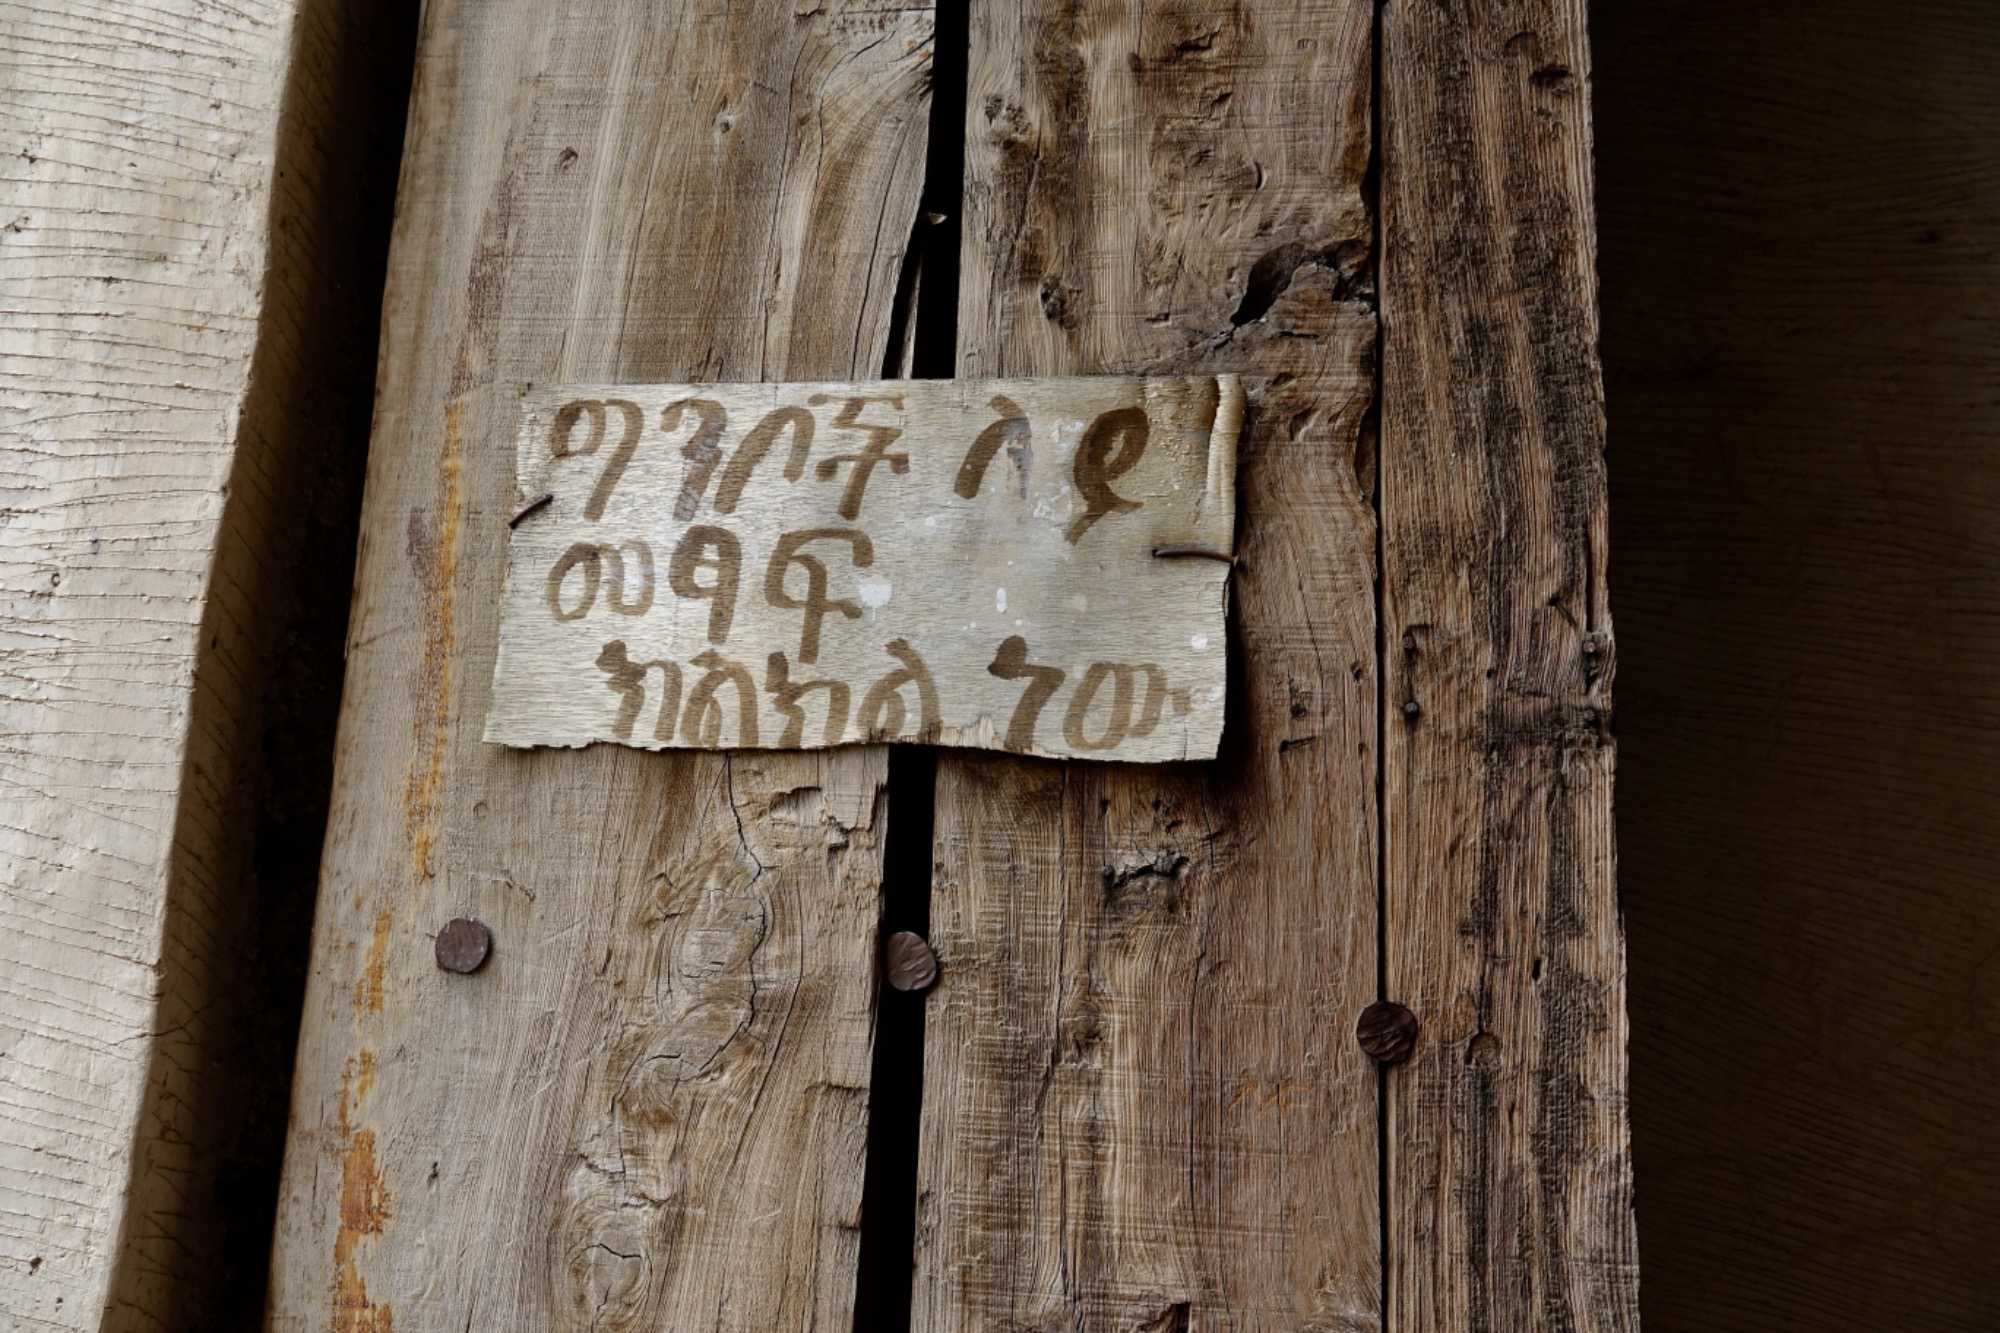 ግንቦች ላይ
መፃፍ
ክልክል ነው